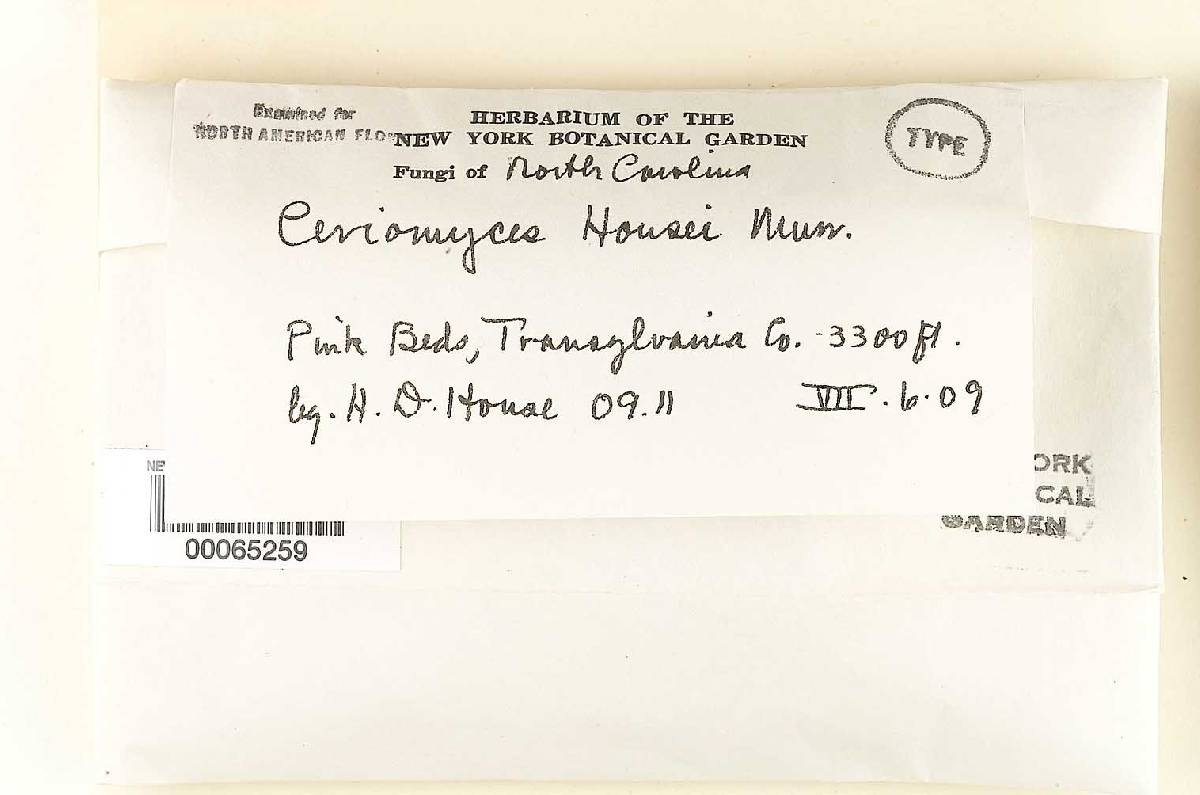 Examined for
NORTH AMERICAN FLO
HERBARIUM OF THE
NEW YORK BOTANICAL GARDEN
TYPE
Fungi of North Carolina
Ceriomyces Housei Murr.
Pink Beds, Transylvania Co. - 3300 ft.
leg. H. D. House 09.11 VII.6.09
NE
00065259
ORK
CAL
GARDEN